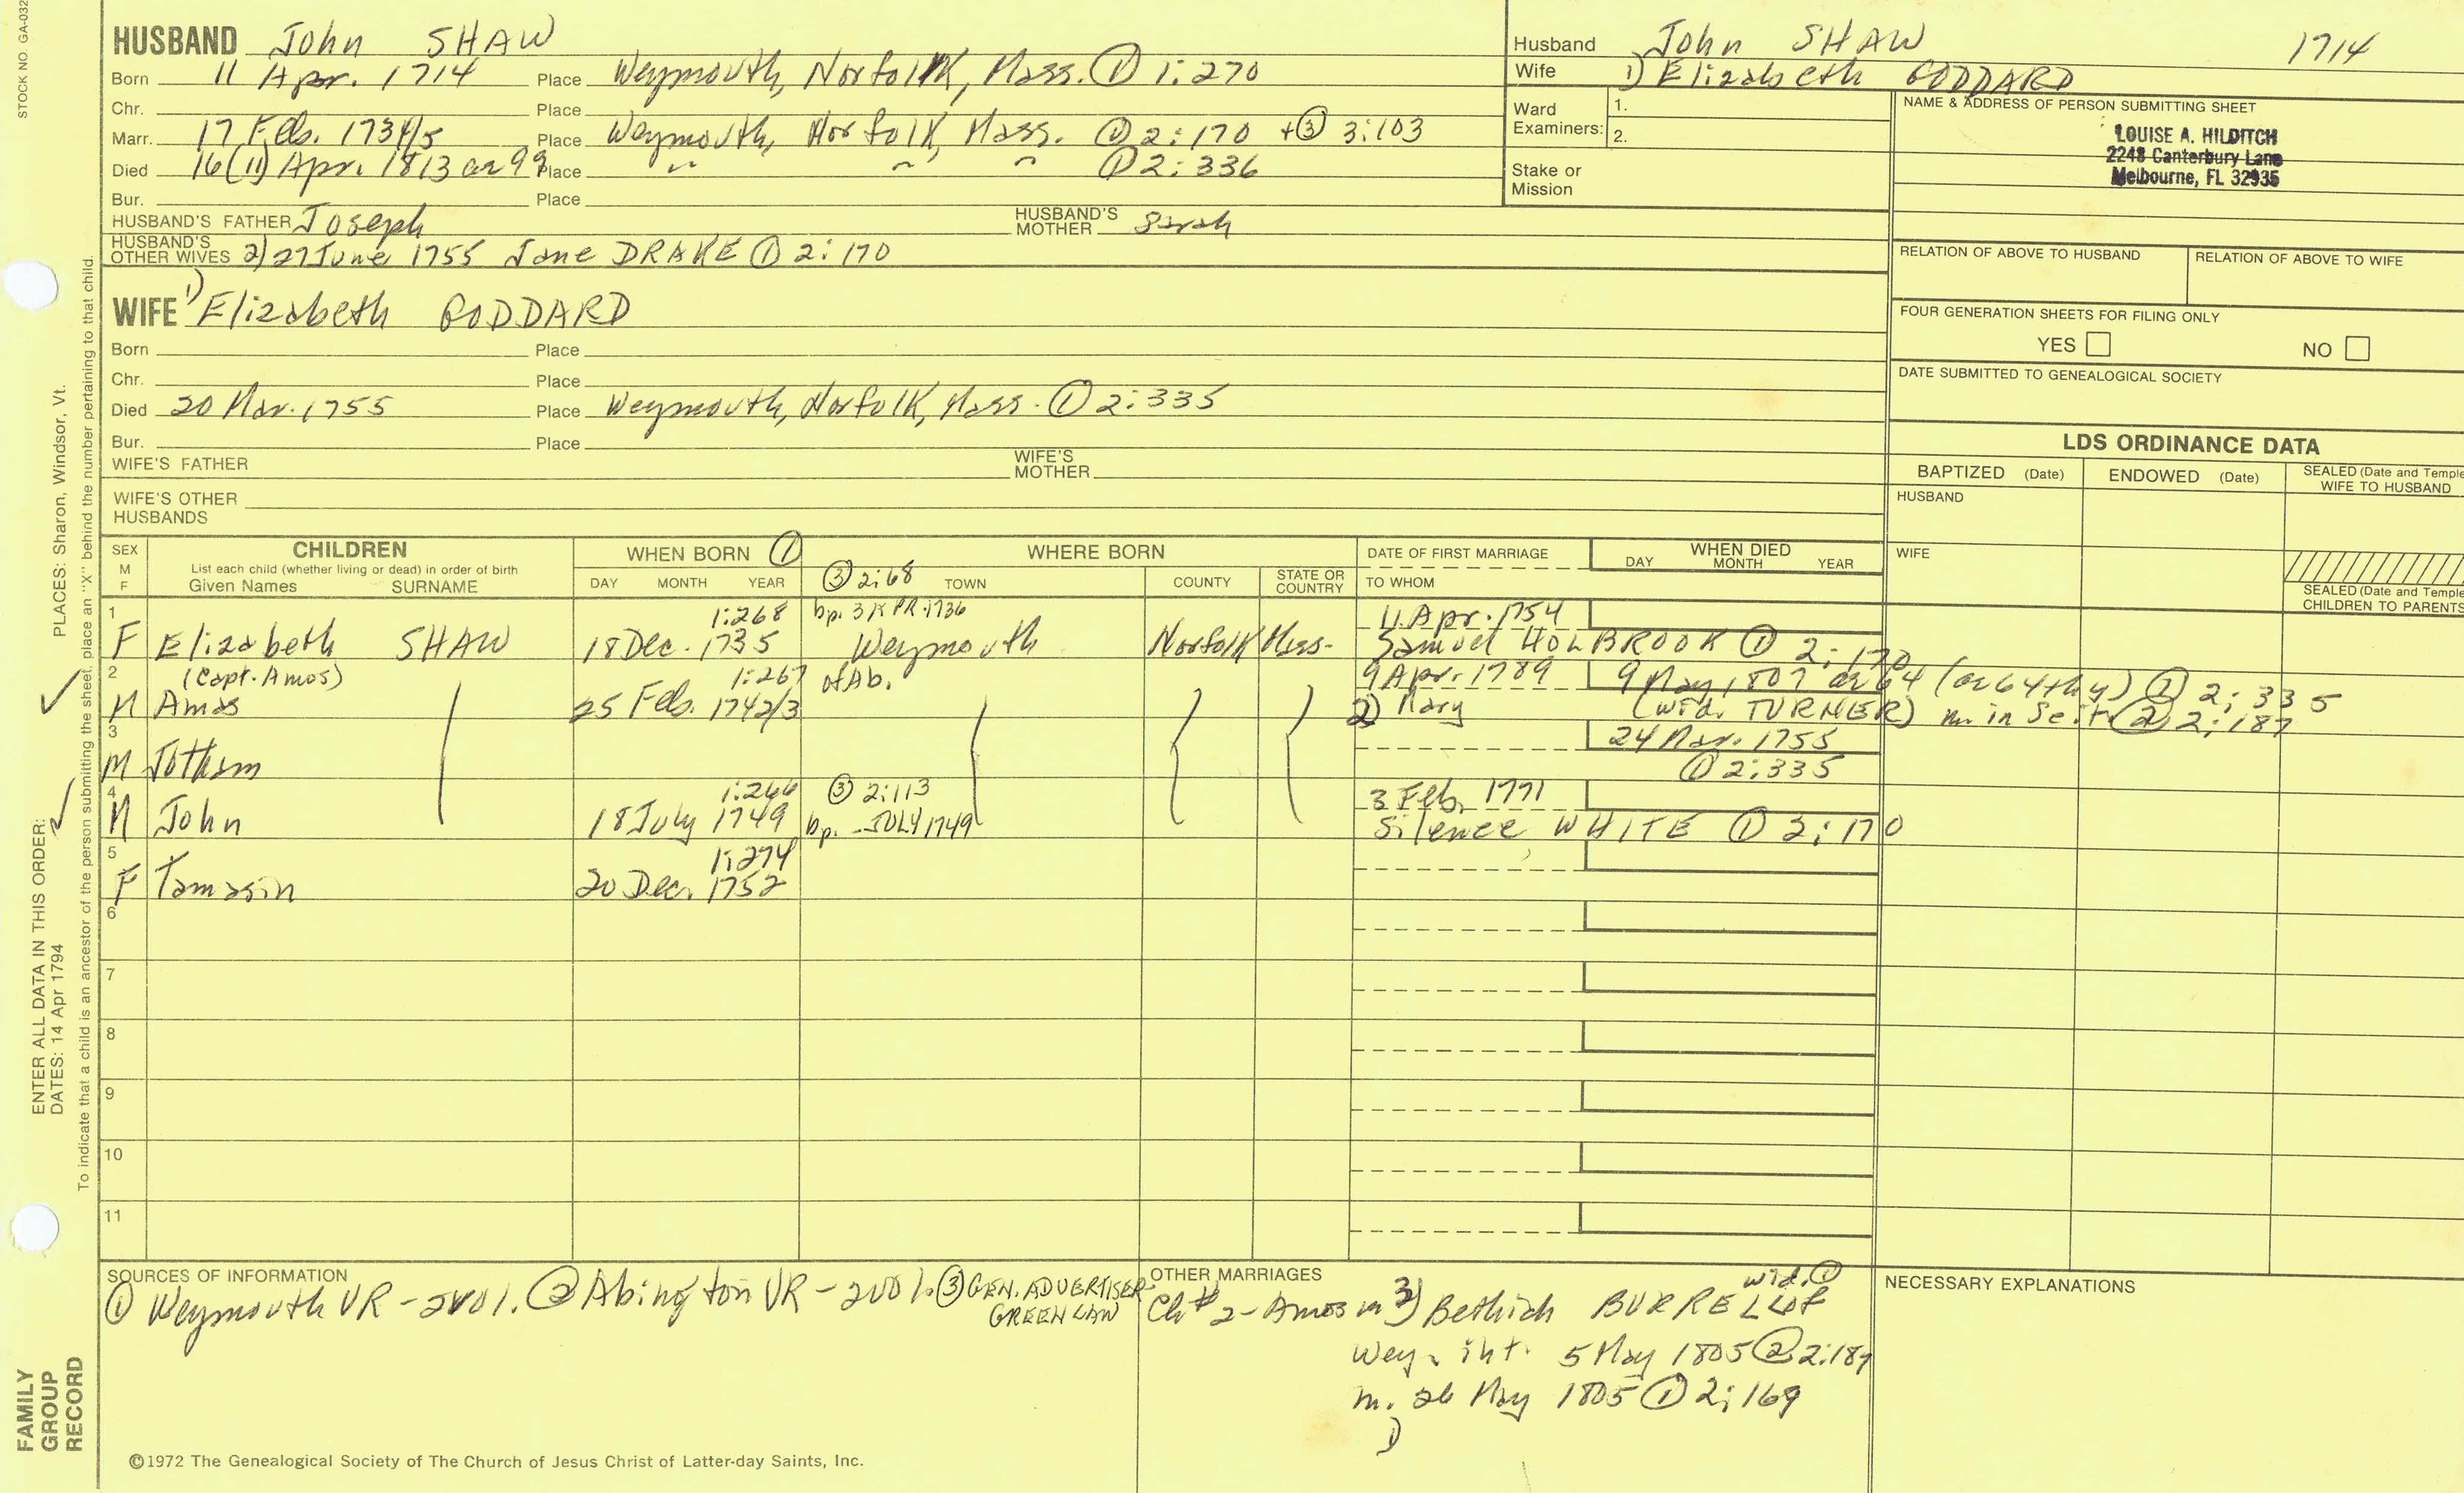 STOCK NO. GA-032
HUSBAND John SHAW
Born 11 Apr. 1714 Place Weymouth, Norfolk, Mass. ① 1:270
Chr. Place
Marr. 17 Feb. 1734/5 Place Weymouth, Norfolk, Mass. ① 2:170 + ③ 3:103
Died 16(11) Apr. 1813 ae 99 Place " " " ① 2:336
Bur. Place
HUSBAND'S FATHER Joseph HUSBAND'S MOTHER Sarah
HUSBAND'S OTHER WIVES 2) 27 June 1755 Jane DRAKE ① 2:170
WIFE 1) Elizabeth GODDARD
Born Place
Chr. Place
Died 20 Mar. 1755 Place Weymouth, Norfolk, Mass. ① 2:335
Bur. Place
WIFE'S FATHER WIFE'S MOTHER
WIFE'S OTHER HUSBANDS
Husband John SHAW 1714
Wife 1) Elizabeth GODDARD
Ward Examiners: 1.
2.
Stake or Mission
NAME & ADDRESS OF PERSON SUBMITTING SHEET
LOUISE A. HILDITCH
2248 Canterbury Lane
Melbourne, FL 32935
RELATION OF ABOVE TO HUSBAND RELATION OF ABOVE TO WIFE
FOUR GENERATION SHEETS FOR FILING ONLY
YES NO
DATE SUBMITTED TO GENEALOGICAL SOCIETY
LDS ORDINANCE DATA
BAPTIZED (Date) ENDOWED (Date) SEALED (Date and Temple
WIFE TO HUSBAND
HUSBAND
WIFE
SEALED (Date and Temple
CHILDREN TO PARENTS
SEX M F CHILDREN WHEN BORN ① WHERE BORN DATE OF FIRST MARRIAGE WHEN DIED
List each child (whether living or dead) in order of birth
Given Names SURNAME DAY MONTH YEAR ③ 2:68 TOWN COUNTY STATE OR COUNTRY TO WHOM DAY MONTH YEAR
1 1:268 bp. 3 APR. 1736 11 Apr. 1754
F Elizabeth SHAW 18 Dec. 1735 Weymouth Norfolk Mass. Samuel HOLBROOK ① 2:170
2 (Capt. Amos) 1:267 of Ab. 9 Apr. 1789 9 May 1807 ae 64 (ae 64th y) ① 2:335
M Amos 25 Feb. 1742/3 2) Mary (wid. TURNER) m. in Scit. ② 2:187
3 24 Mar. 1755
M Jotham ① 2:335
4 1:266 ③ 2:113 3 Feb. 1771
M John 18 July 1749 bp. - JULY 1749 Silence WHITE ① 2:170
5 1:274
F Tamasin 20 Dec. 1752
6
7
8
9
10
11
SOURCES OF INFORMATION
① Weymouth VR - 2vol. ② Abington VR - 2vol. ③ GEN. ADVERTISER-
GREENLAW
OTHER MARRIAGES wid. ①
Ch # 2 - Amos m 3) Bethiah BURRELL of
Wey. int. 5 May 1805 ② 2:187
m. 26 May 1805 ① 2:169
1)
NECESSARY EXPLANATIONS
©1972 The Genealogical Society of The Church of Jesus Christ of Latter-day Saints, Inc.
FAMILY
GROUP
RECORD
ENTER ALL DATA IN THIS ORDER:
DATES: 14 Apr 1794
PLACES: Sharon, Windsor, Vt.
To indicate that a child is an ancestor of the person submitting the sheet, place an "X" behind the number pertaining to that child.